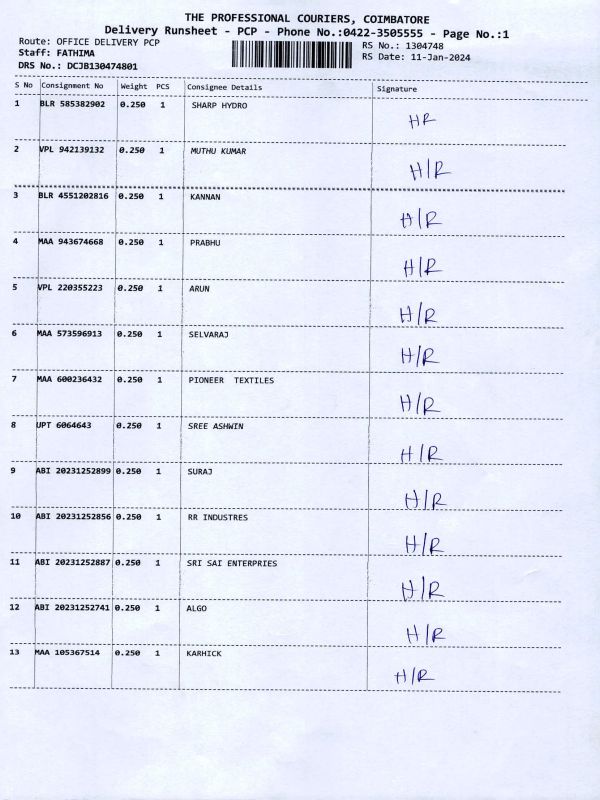 THE PROFESSIONAL COURIERS, COIMBATORE
Delivery Runsheet - PCP - Phone No.:0422-3505555 - Page No.:1
Route: OFFICE DELIVERY PCP
Staff: FATHIMA
DRS No.: DCJB130474801
RS No.: 1304748
RS Date: 11-Jan-2024
S No Consignment No Weight PCS Consignee Details Signature
1 BLR 585382902 0.250 1 SHARP HYDRO
HR
2 VPL 942139132 0.250 1 MUTHU KUMAR
H/R
3 BLR 4551202816 0.250 1 KANNAN
H/R
4 MAA 943674668 0.250 1 PRABHU
H/R
5 VPL 220355223 0.250 1 ARUN
H/R
6 MAA 573596913 0.250 1 SELVARAJ
H/R
7 MAA 600236432 0.250 1 PIONEER TEXTILES
H/R
8 UPT 6064643 0.250 1 SREE ASHWIN
H/R
9 ABI 20231252899 0.250 1 SURAJ
H/R
10 ABI 20231252856 0.250 1 RR INDUSTRES
H/R
11 ABI 20231252887 0.250 1 SRI SAI ENTERPRIES
H/R
12 ABI 20231252741 0.250 1 ALGO
H/R
13 MAA 105367514 0.250 1 KARHICK
H/R